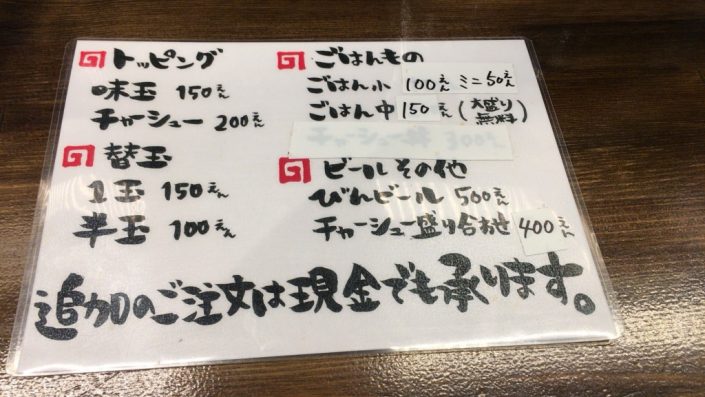 トッピング
味玉 150えん
チャーシュー 200えん
替玉
1玉 150えん
半玉 100えん
ごはんもの
ごはん小 100えん ミニ50えん
ごはん中 150えん (大盛り無料)
チャーシュー丼 300えん
ビールその他
びんビール 500えん
チャーシュー盛り合わせ 400えん
追加のご注文は現金でも承ります。